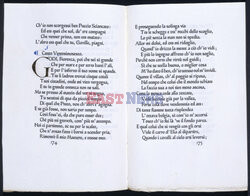 Ch'io non scorgessi ben Puccio Sciancato:
Ed era quel che sol, de' tre compagni
Che venner prima, non era mutato:
L'altro era quel che tu, Gaville, piagni.
Canto Vigesimosesto.
GODI, Fiorenza, poi che sei sì grande
Che per mare e per terra batti l'ali,
E per l'inferno il tuo nome si spande.
Tra li ladron trovai cinque cotali
Tuoi cittadini, onde mi vien vergogna,
E tu in grande onranza non ne sali.
Ma se presso al mattin del ver si sogna,
Tu sentirai di qua da picciol tempo
Di quel che Prato, non ch'altri, t'agogna.
E se già fosse, non saria per tempo.
Così foss'ei, da che pure esser dee;
Chè più mi graverà, com' più m'attempo.
Noi ci partimmo, e su per le scalee,
Che n'avean fatte i borni a scender pria,
Rimontò il mio Maestro, e trasse mee.
174
E proseguendo la solinga via
Tra le schegge e tra' rocchi dello scoglio,
Lo piè senza la man non si spedia.
Allor mi dolsi, ed ora mi ridoglio,
Quando drizzo la mente a ciò ch'io vidi;
E più lo ingegno affreno ch'io non soglio,
Perchè non corra che virtù nol guidi;
Sì che se stella buona, o miglior cosa
M'ha dato il ben, ch'io stesso nol m'invidi.
Quante il villan, ch'al poggio si riposa,
Nel tempo che colui che il mondo schiara
La faccia sua a noi tien meno ascosa,
Come la mosca cede alla zanzara,
Vede lucciole giù per la vallea,
Forse colà dove vendemmia ed ara:
Di tante fiamme tutta risplendea
L'ottava bolgia, sì com'io m'accorsi,
Tosto ch'io fui là 've il fondo parea.
E qual colui che si vengiò con gli orsi,
Vide il carro d'Elia al dipartire,
Quando i cavalli al cielo erti levorsi;
175